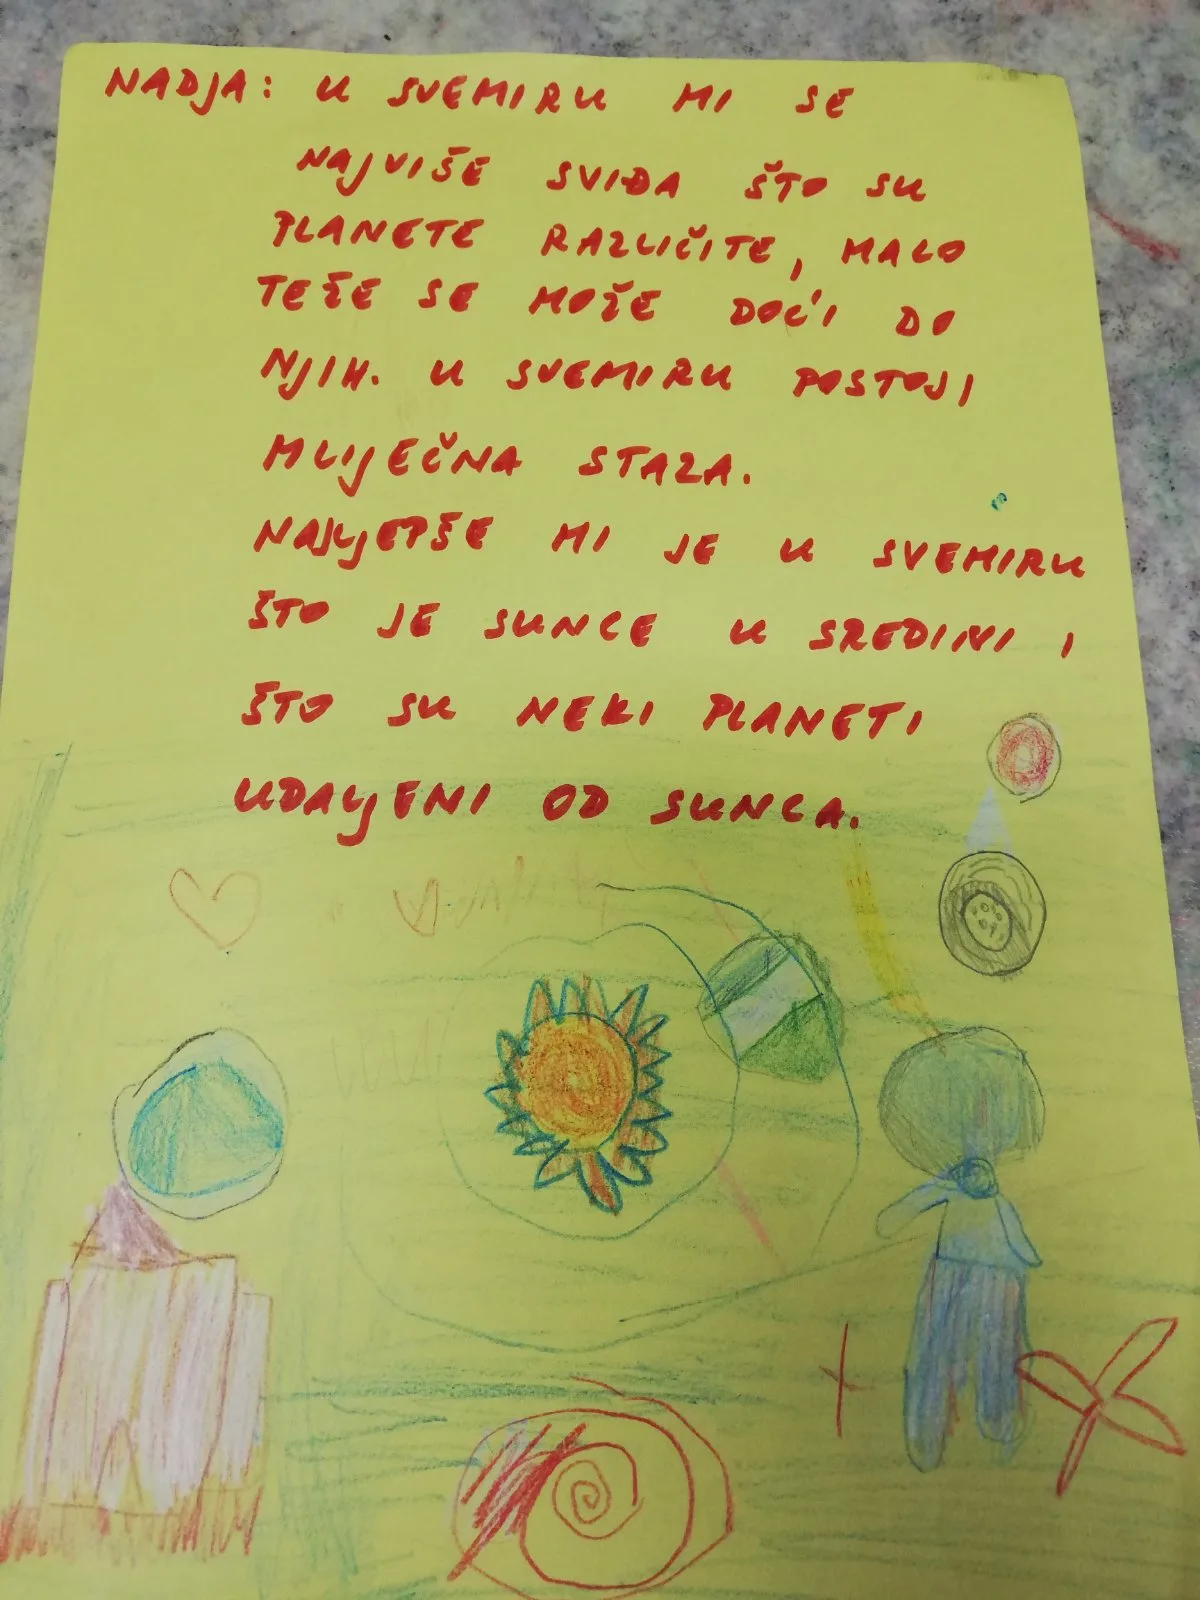 NADJA: U SVEMIRU MI SE
NAJVIŠE SVIĐA ŠTO SU
PLANETE RAZLIČITE, MALO
TEŽE SE MOŽE DOĆI DO
NJIH. U SVEMIRU POSTOJI
MLIJEČNA STAZA.
NAJLJEPŠE MI JE U SVEMIRU
ŠTO JE SUNCE U SREDINI I
ŠTO SU NEKI PLANETI
UDALJENI OD SUNCA.